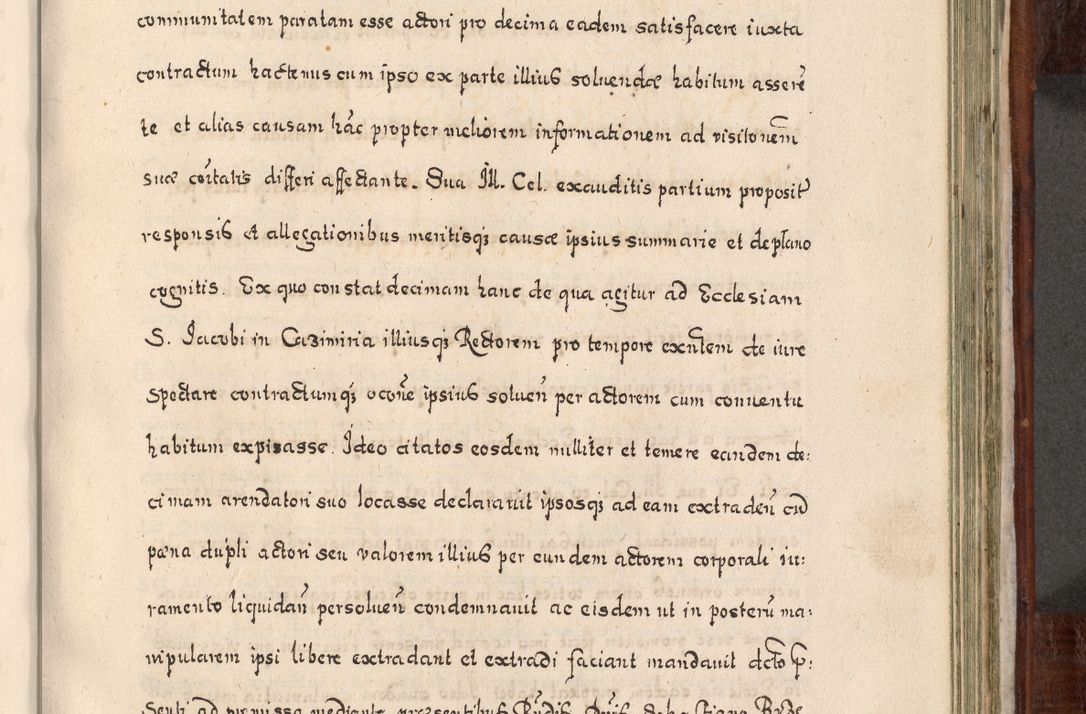 communitatem paratam esse actori pro decima eadem satisfacere iuxta
contractum hactenus cum ipso ex parte illius soluendæ habitum assere
te et alias causam hãc propter meliorem informationem ad visitonem
suæ coitatis differi affectante. Sua Ill. Cel. exauditis partium proposit
responsis et allegationibus meritisqȝ causæ ipsius summarie et de plano
cognitis. Ex quo constat decimam hanc de qua agitur ad Ecclesiam
S. Jacobi in Cazimiria illiusqȝ Rectorem pro tempore exñtem de iure
spectare contractumqȝ ocoñe ipsius soluen̄ per actorem cum conuentu
habitum expirasse. Ideo citatos eosdem nulliter et temere eandem de:
cimam arendatori suo locasse declarauit ipsosqȝ ad eam extraden̄ cũ
pæna dupli actori seu valorem illius per eundem actorem corporali iu:
ramento liquidan̄ persoluen̄ condemnauit ac eisdem ut in posterũ ma:
nipularem ipsi libere extradant et extradi faciant mandauit dcto p:
senti ad præmissa mediante præsentibus Rñdis Dnis Sebastiano